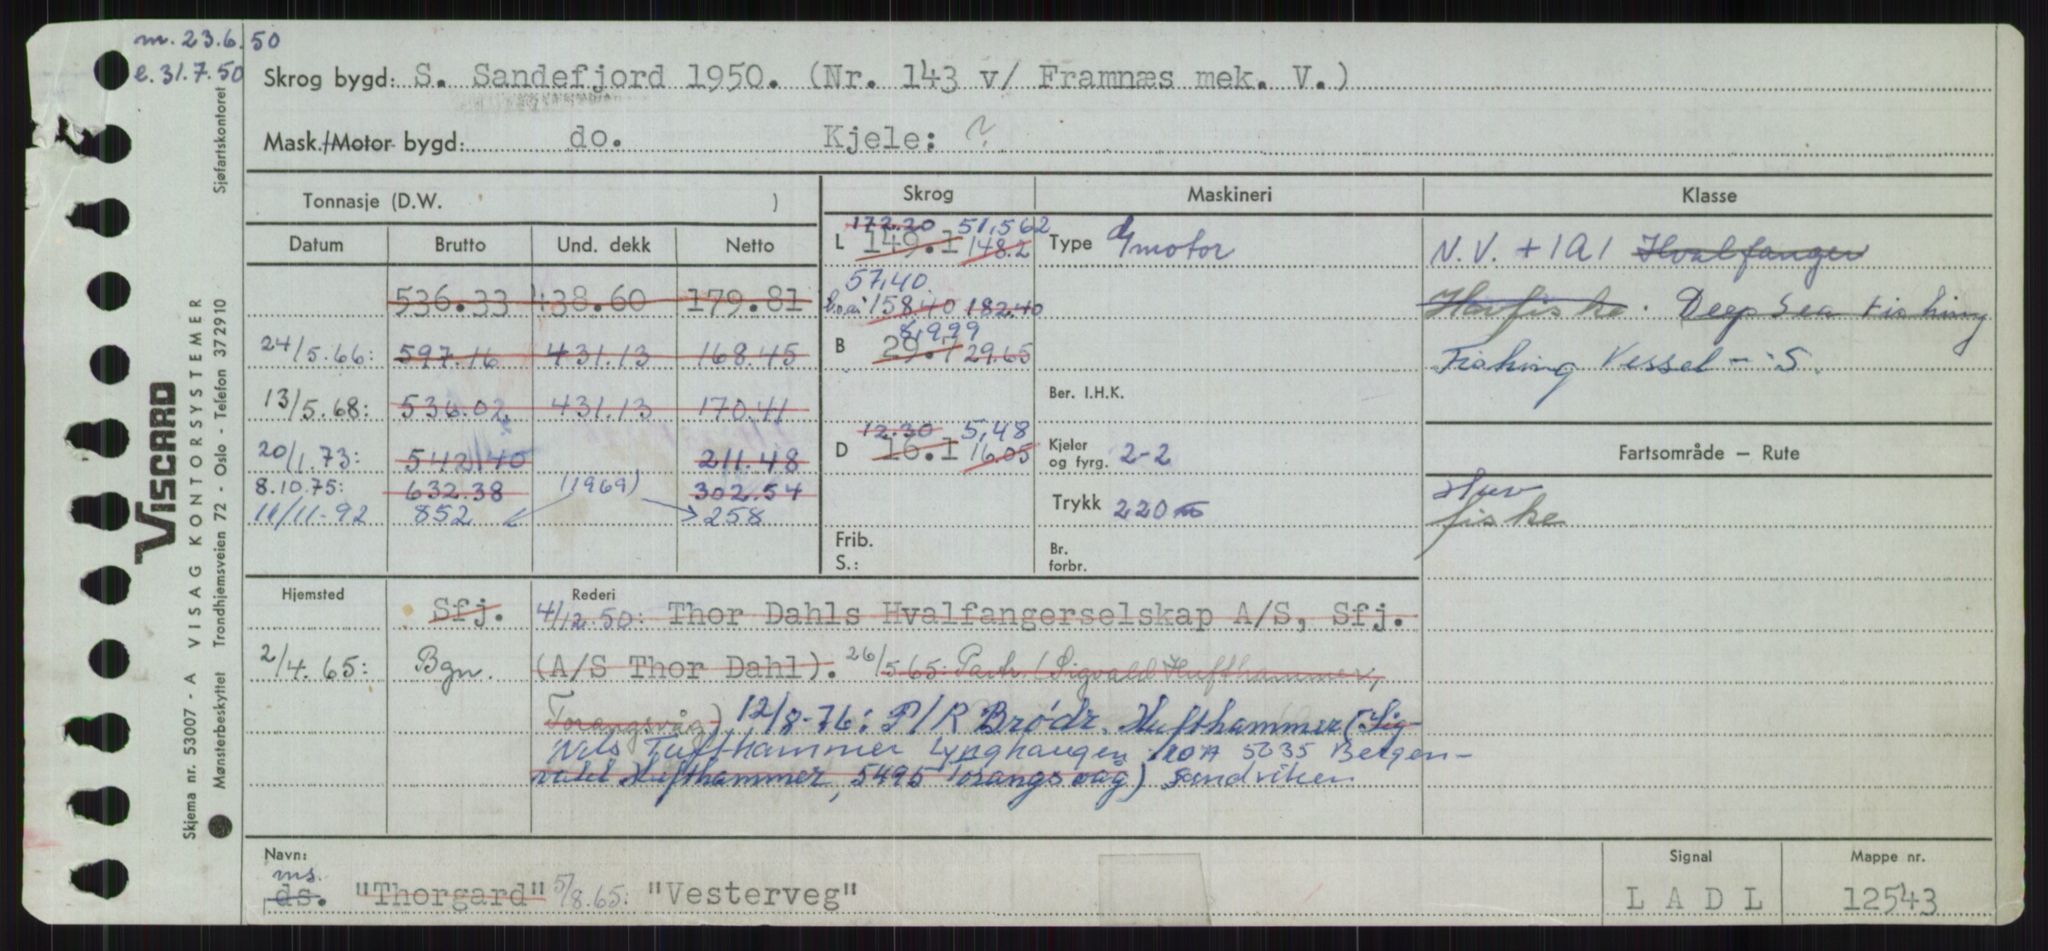 m. 23.6.50
e. 31.7.50
Skrog bygd: S. Sandefjord 1950. (Nr. 143 v/ Framnæs mek. V.)
Mask./Motor bygd: do. Kjele: ?
Tonnasje (D.W. )
Datum Brutto Und. dekk Netto
536.33 438.60 179.81
24/5.66: 597.16 431.13 168.45
13/5.68: 536.02 431.13 170.41
20/1.73: 542.40 211.48
8.10.75: 632.38 (1969) 302.54
11/11-92 852 258
Skrog
172.20 51,562
L 149.1 148.2
57,40
158.40 182.40
8,999
B 29.1 29.65
12.30 5,48
D 16.1 16.05
Frib.
S.:
Maskineri
Type motor
Ber. I.H.K.
Kjeler og fyrg. 2-2
Trykk 220
Br. forbr.
Klasse
N.V. + 1A1 Hvalfanger
Havfiske. Deep Sea Fishing
Fishing Vessel - S.
Fartsområde – Rute
Hav
fiske
Hjemsted Rederi
Sfj. 4/12.50: Thor Dahls Hvalfangerselskap A/S, Sfj.
2/4.65: Bgn. (A/S Thor Dahl). 26/5 65: Part. (Sigvald Hufthammer,
Torangsvåg) 12/8-76: P/R Brødr. Hufthammer (Sig-
Nils Hufthammer Lynghaugen 10A 5035 Bergen-
vald Hufthammer, 5495 Torangsvåg) Sandviken
Navn:
ms.
ds. "Thorgard" 5/8.65: "Vesterveg"
Signal
L A D L
Mappe nr.
12543
VISCARD
VISAG KONTORSYSTEMER
Skjema nr. 53007 - A
Mønsterbeskyttet Trondhjemsveien 72 - Oslo - Telefon 372910
Sjøfartskontoret